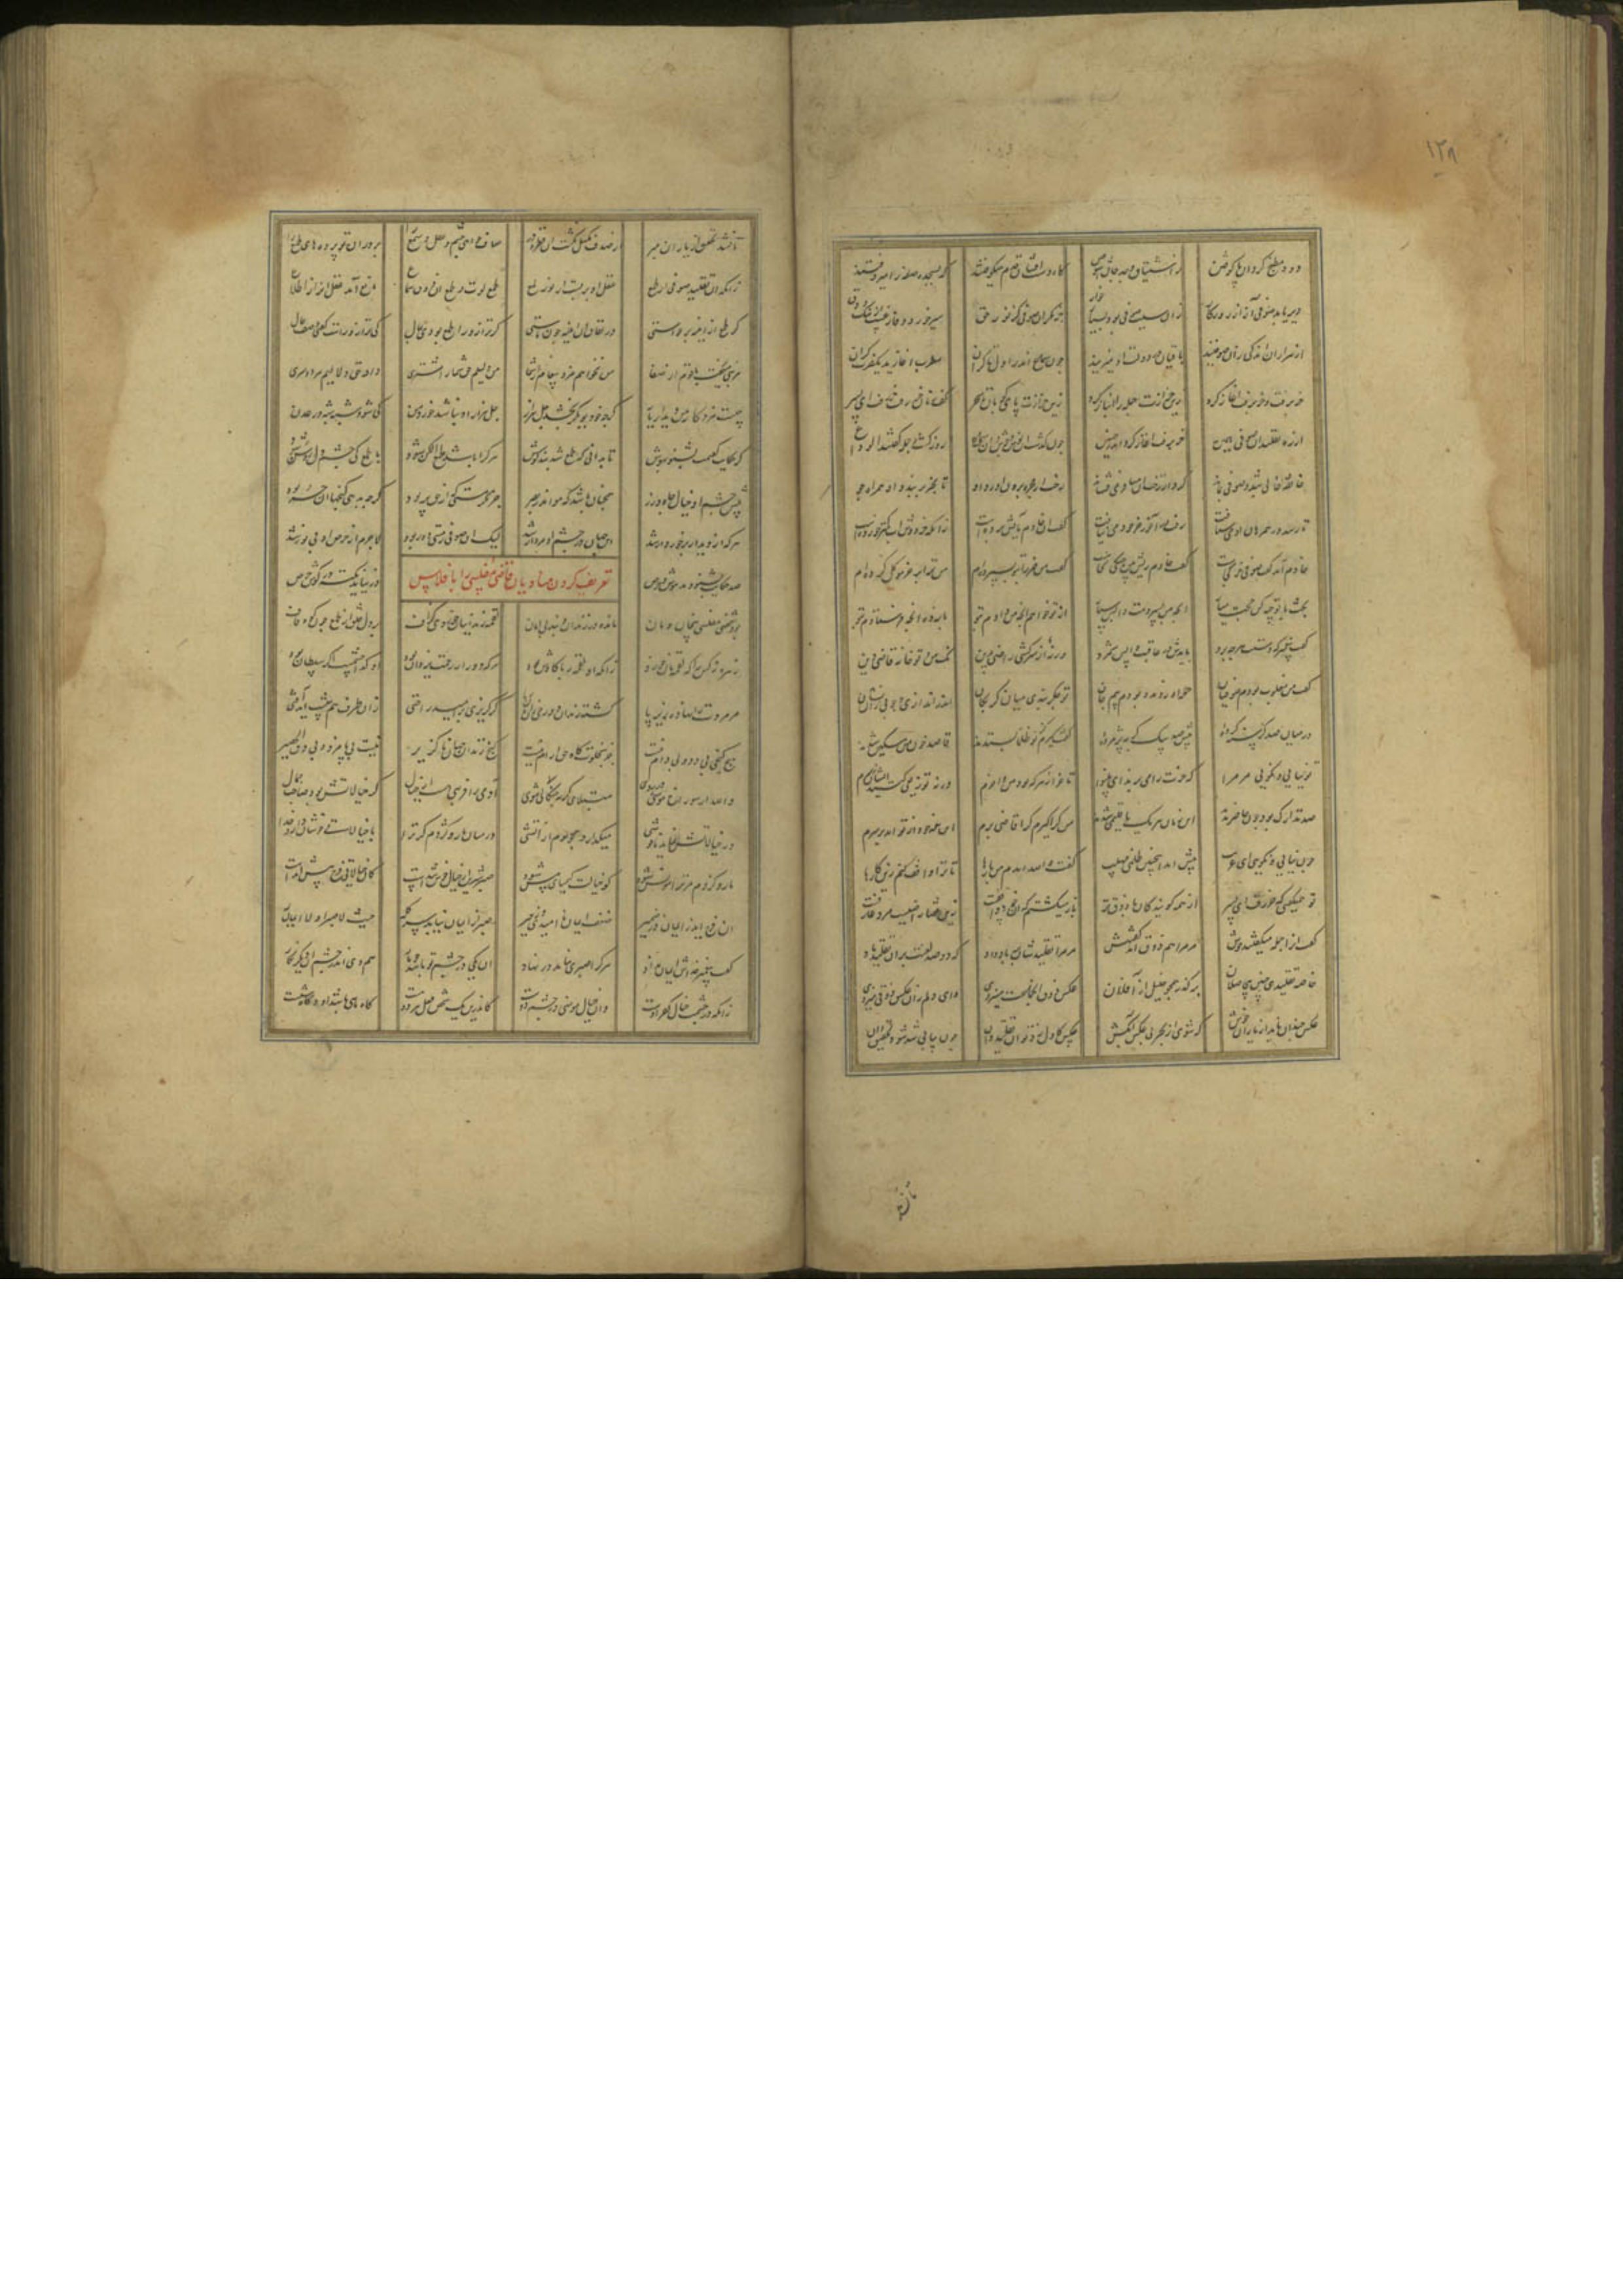 ۱۲۸
دود مطبخ گرد آن پا کوفتن ز اشتیاق و وجد جان آشوفتن گاه دست افشان قدم میکوفتند گه بسجده صفه را میروفتند
دیر یابد صوفی آز از روزگار زان سبب صوفی بود بسیار خوار جز مگر آن صوفی کز نور حق سیر خورد او فارغست از ننگ دق
از هزاران اندکی زان صوفیند باقیان در دولت او میزیند چون سماع آمد ز اول تا کران مطرب آغازید یک ضرب گران
خر برفت و خر برفت آغاز کرد زین حرارت جمله را انباز کرد زین حرارت پای کوبان تا سحر کف زنان خر رفت خر رفت ای پسر
از ره تقلید آن صوفی همین خر برفت آغاز کرد اندر حنین چون گذشت آن نوش و جوش و آن سماع روز گشت و جمله گفتند الوداع
خانقه خالی شد و صوفی بماند گرد از رخت آن مسافر می فشاند رخت از حجره برون آورد او تا بخر بر بندد او همراه جو
تا رسد در همرهان او می شتافت رفت در آخر خر خود می نیافت گفت آن خادم بآبش برده است زانکه خر دوش آب کمتر خورده است
خادم آمد گفت صوفی خر کجاست گفت خادم ریش بین جنگی بخاست گفت من خر را بتو بسپرده ام من ترا بر خر موکل کرده ام
بحث با توجیه کن حجت میار آنچه من بسپردمت واپس سپار از تو خواهم آنچه من دادم بتو باز ده آنچه فرستادم بتو
گفت پیغمبر که دستت هر چه برد بایدش در عاقبت واپس سپرد ور نه از سرکشی راضی بدین نک من و تو خانه قاضی دین
گفت من مغلوب بودم صوفیان حمله آوردند و بودم بیم جان تو جگربندی میان گربکان اندر اندازی و جویی زان نشان
در میان صد گرسنه گرده پیش صد سگ گربه پژمرده گفت گیرم کز تو ظلما بستدند قاصد خون من مسکین شدند
تو نیایی و نگویی مر مرا که خرت را می برند ای بینوا تا خر از هر که بود من وا خرم ورنه توزیعی کنند ایشان زرم
صد تدارک بود چون حاضر بدند این زمان هر یک باقلیمی شدند من کرا گیرم کرا قاضی برم این خود از تو آمد بر سرم
چون نیایی و نگویی ای غریب پیش آمد اینچنین ظلمی مهیب گفت والله آمدم من بارها تا ترا واقف کنم زین کارها
تو همیگفتی که خر رفت ای پسر از همه گویندگان با ذوق تر باز میگشتم که او خود واقفست زین قضا راضیست مرد عارفست
گفت آنرا جمله میگفتند خوش مر مرا هم ذوق آمد گفتنش مر مرا تقلیدشان بر باد داد که دو صد لعنت بر آن تقلید باد
خاصه تقلید چنین بی حاصلان بگذر همچو خلیل از آفلان عکس ذوق آن جماعت میزدی وین دلم زان عکس ذوقی میزدی
عکس چندان باید از یاران خوش که شوی از بحر بی عکس آبکش عکس کاول زد تو آن تقلید دان چون پیاپی شد شود تحقیق آن
تا نشد
تا نشد تحقیق از یاران مبر از صدف مگسل نگشت آن قطره در صاف خواهی چشم و عقل و سمع را بر دران تو پرده های طمع را
زانکه آن تقلید صوفی از طمع عقل او بر بست از نور لمع طمع لوت و طمع آن ذوق و سماع مانع آمد عقل او را ز اطلاع
گر طمع در آینه بر خاستی در نفاق آن آینه چون ماستی گر ترازو را طمع بودی بمال کی ترازو راست گفتی وصف حال
هر نبی میگفت با قوم از صفا من نخواهم مزد پیغام از شما من دلیلم حق شما را مشتری داد حق دلالیم هر دو سری
چیست مزد کار من دیدار یار گرچه خود بوبکر بخشد چل هزار چل هزار او نباشد مزد من کی شود شبه شبه در عدن
یک حکایت گویمت بشنو بهوش تا بدانی که طمع شد بند گوش هر کرا باشد طمع الکن شود با طمع کی چشم و دل روشن شود
پیش چشم او خیال جاه و زر همچنان باشد که موی اندر بصر جز مگر مستی که از حق پر بود گرچه بدهی گنجها او حر بود
هر که از دیدار برخوردار شد این جهان در چشم او مردار شد لیک آن صوفی ز مستی دور بود لاجرم از حرص او بی نور شد
صد حکایت بشنود مدهوش حرص در نیاید نکته در گوش حرص
تعریف کردن منادیان قاضی مفلسی را با فلاس
بود شخصی مفلسی بی خان و مان مانده در زندان و بند بی امان لقمه زندانیان خوردی گزاف بر دل خلق از طمع چون کوه قاف
زهره نه کس را که لقمه نان خورد زانکه آن لقمه ربا گاوش برد هر که دور از رحمت رحمان بود او گدا چشمست اگر سلطان بود
مر مروت را نهاده زیر پا گشته زندان دوزخی زان نان ربا گر گریزی بر امید راحتی زان طرف هم پیشت آید آفتی
هیچ کنجی بی دد و بی دام نیست جز بخلوتگاه حق آرام نیست کنج زندان جهان ناگزیر نیست بی پامزد و بی دق الحصیر
والله ار سوراخ موشی در روی مبتلای گربه چنگالی شوی آدمی را فربهی هست از خیال گر خیالاتش بود صاحب جمال
ور خیالاتش نماید ناخوشی میگدازد همچو موم از آتشی در میان مار و کژدم گر ترا با خیالات خوشان دارد خدا
مار و کژدم مر ترا مونس شود کو خیالت کیمیای مس شود صبر شیرین از خیال خوش شدست کان خیالات فرج پیش آمدست
آن فرج آید ز ایمان در ضمیر ضعف ایمان ناامیدی و زحیر صبر از ایمان بیابد سر کله حیث لا صبر فلا ایمان له
گفت پیغمبر خداش ایمان نداد هر که را صبری نباشد در نهاد آن یکی در چشم تو باشد چو مار هم وی اندر چشم آن دیگر نگار
زانکه در چشمت خیال کفر اوست وان خیال مومنی در چشم دوست کاندرین یک شخص هر دو فعل هست گاه ماهی باشد او و گاه شست